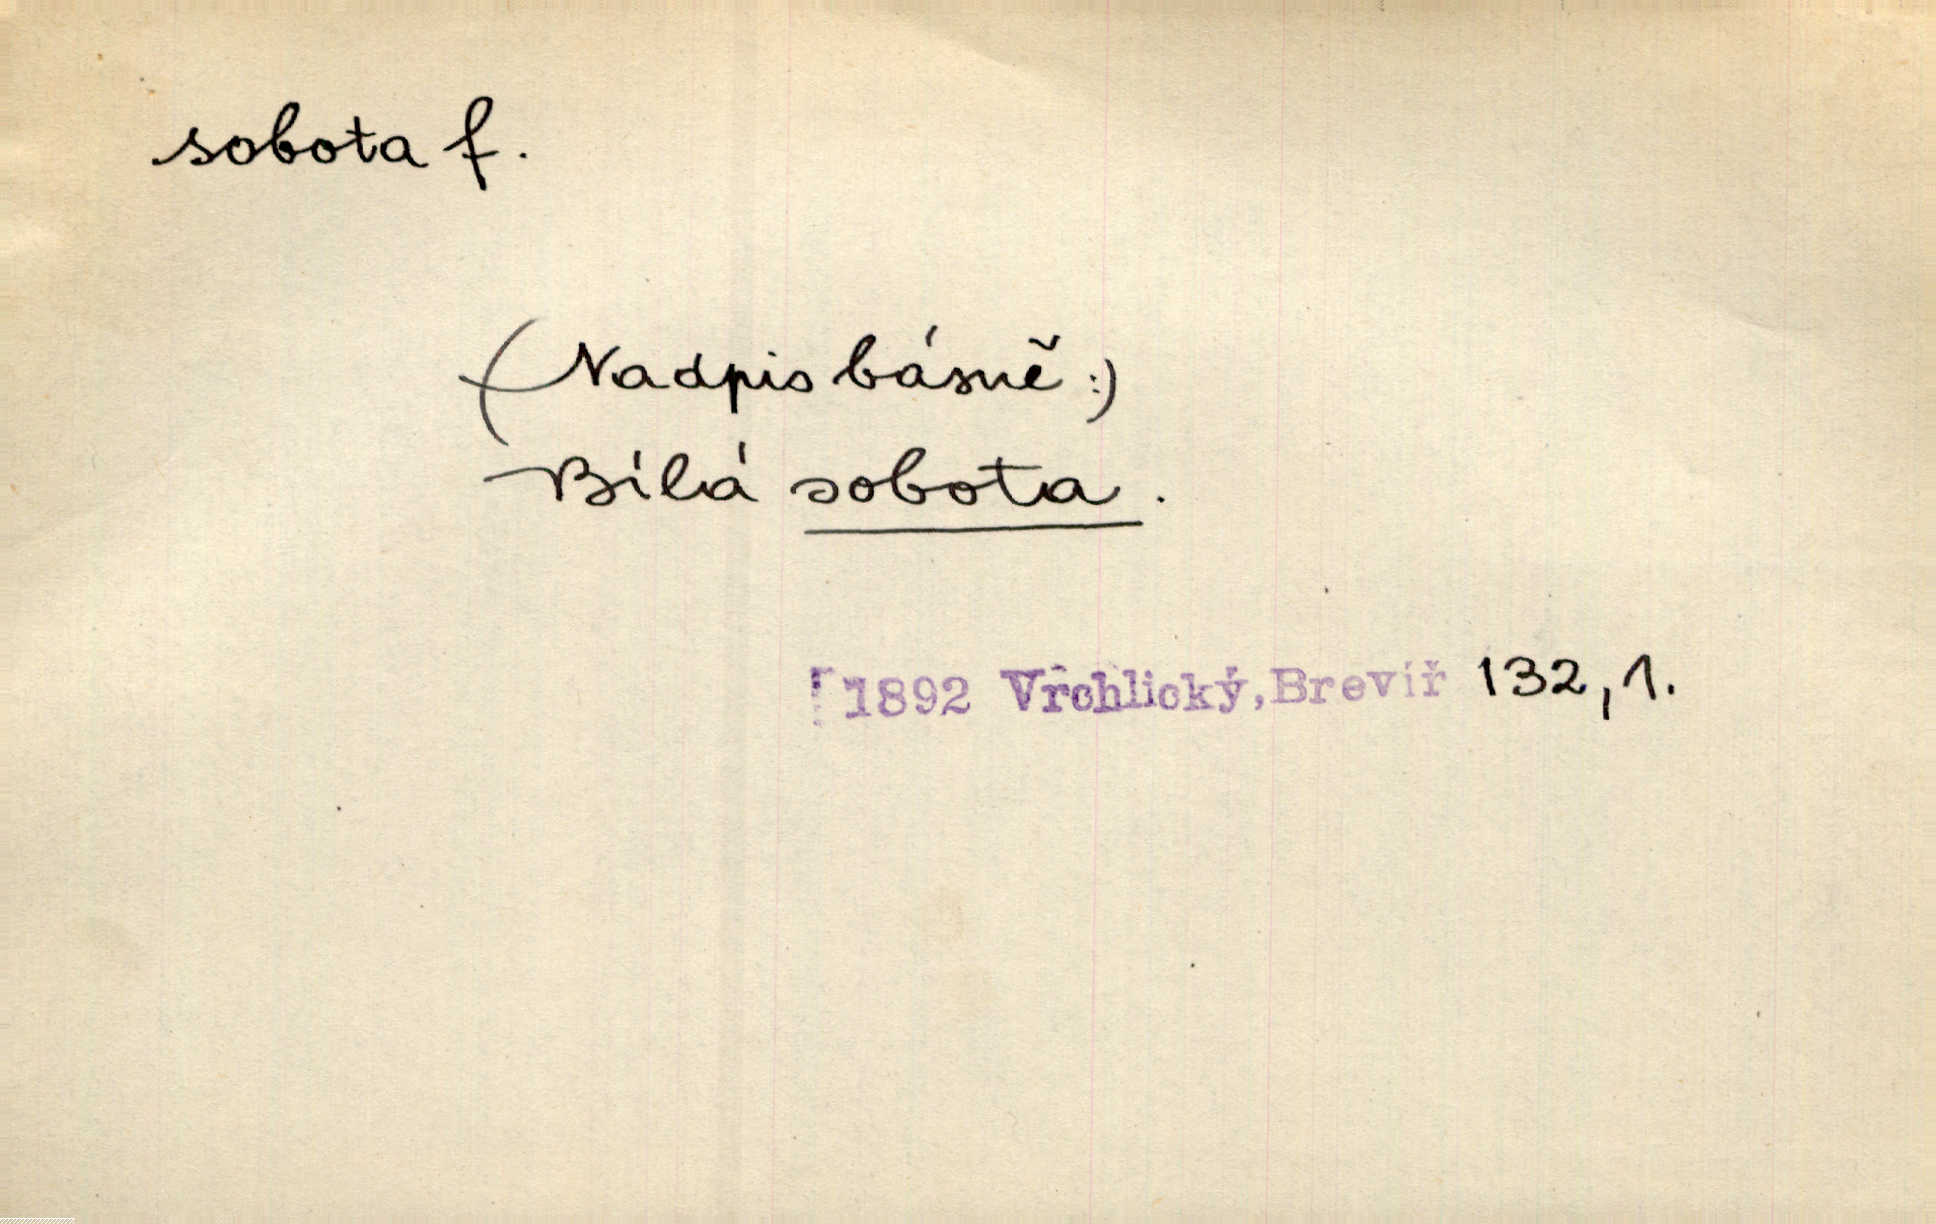 sobota f.
(Nadpis básně:)
Bílá sobota.
1892 Vrchlický, Brevíř 132,1.